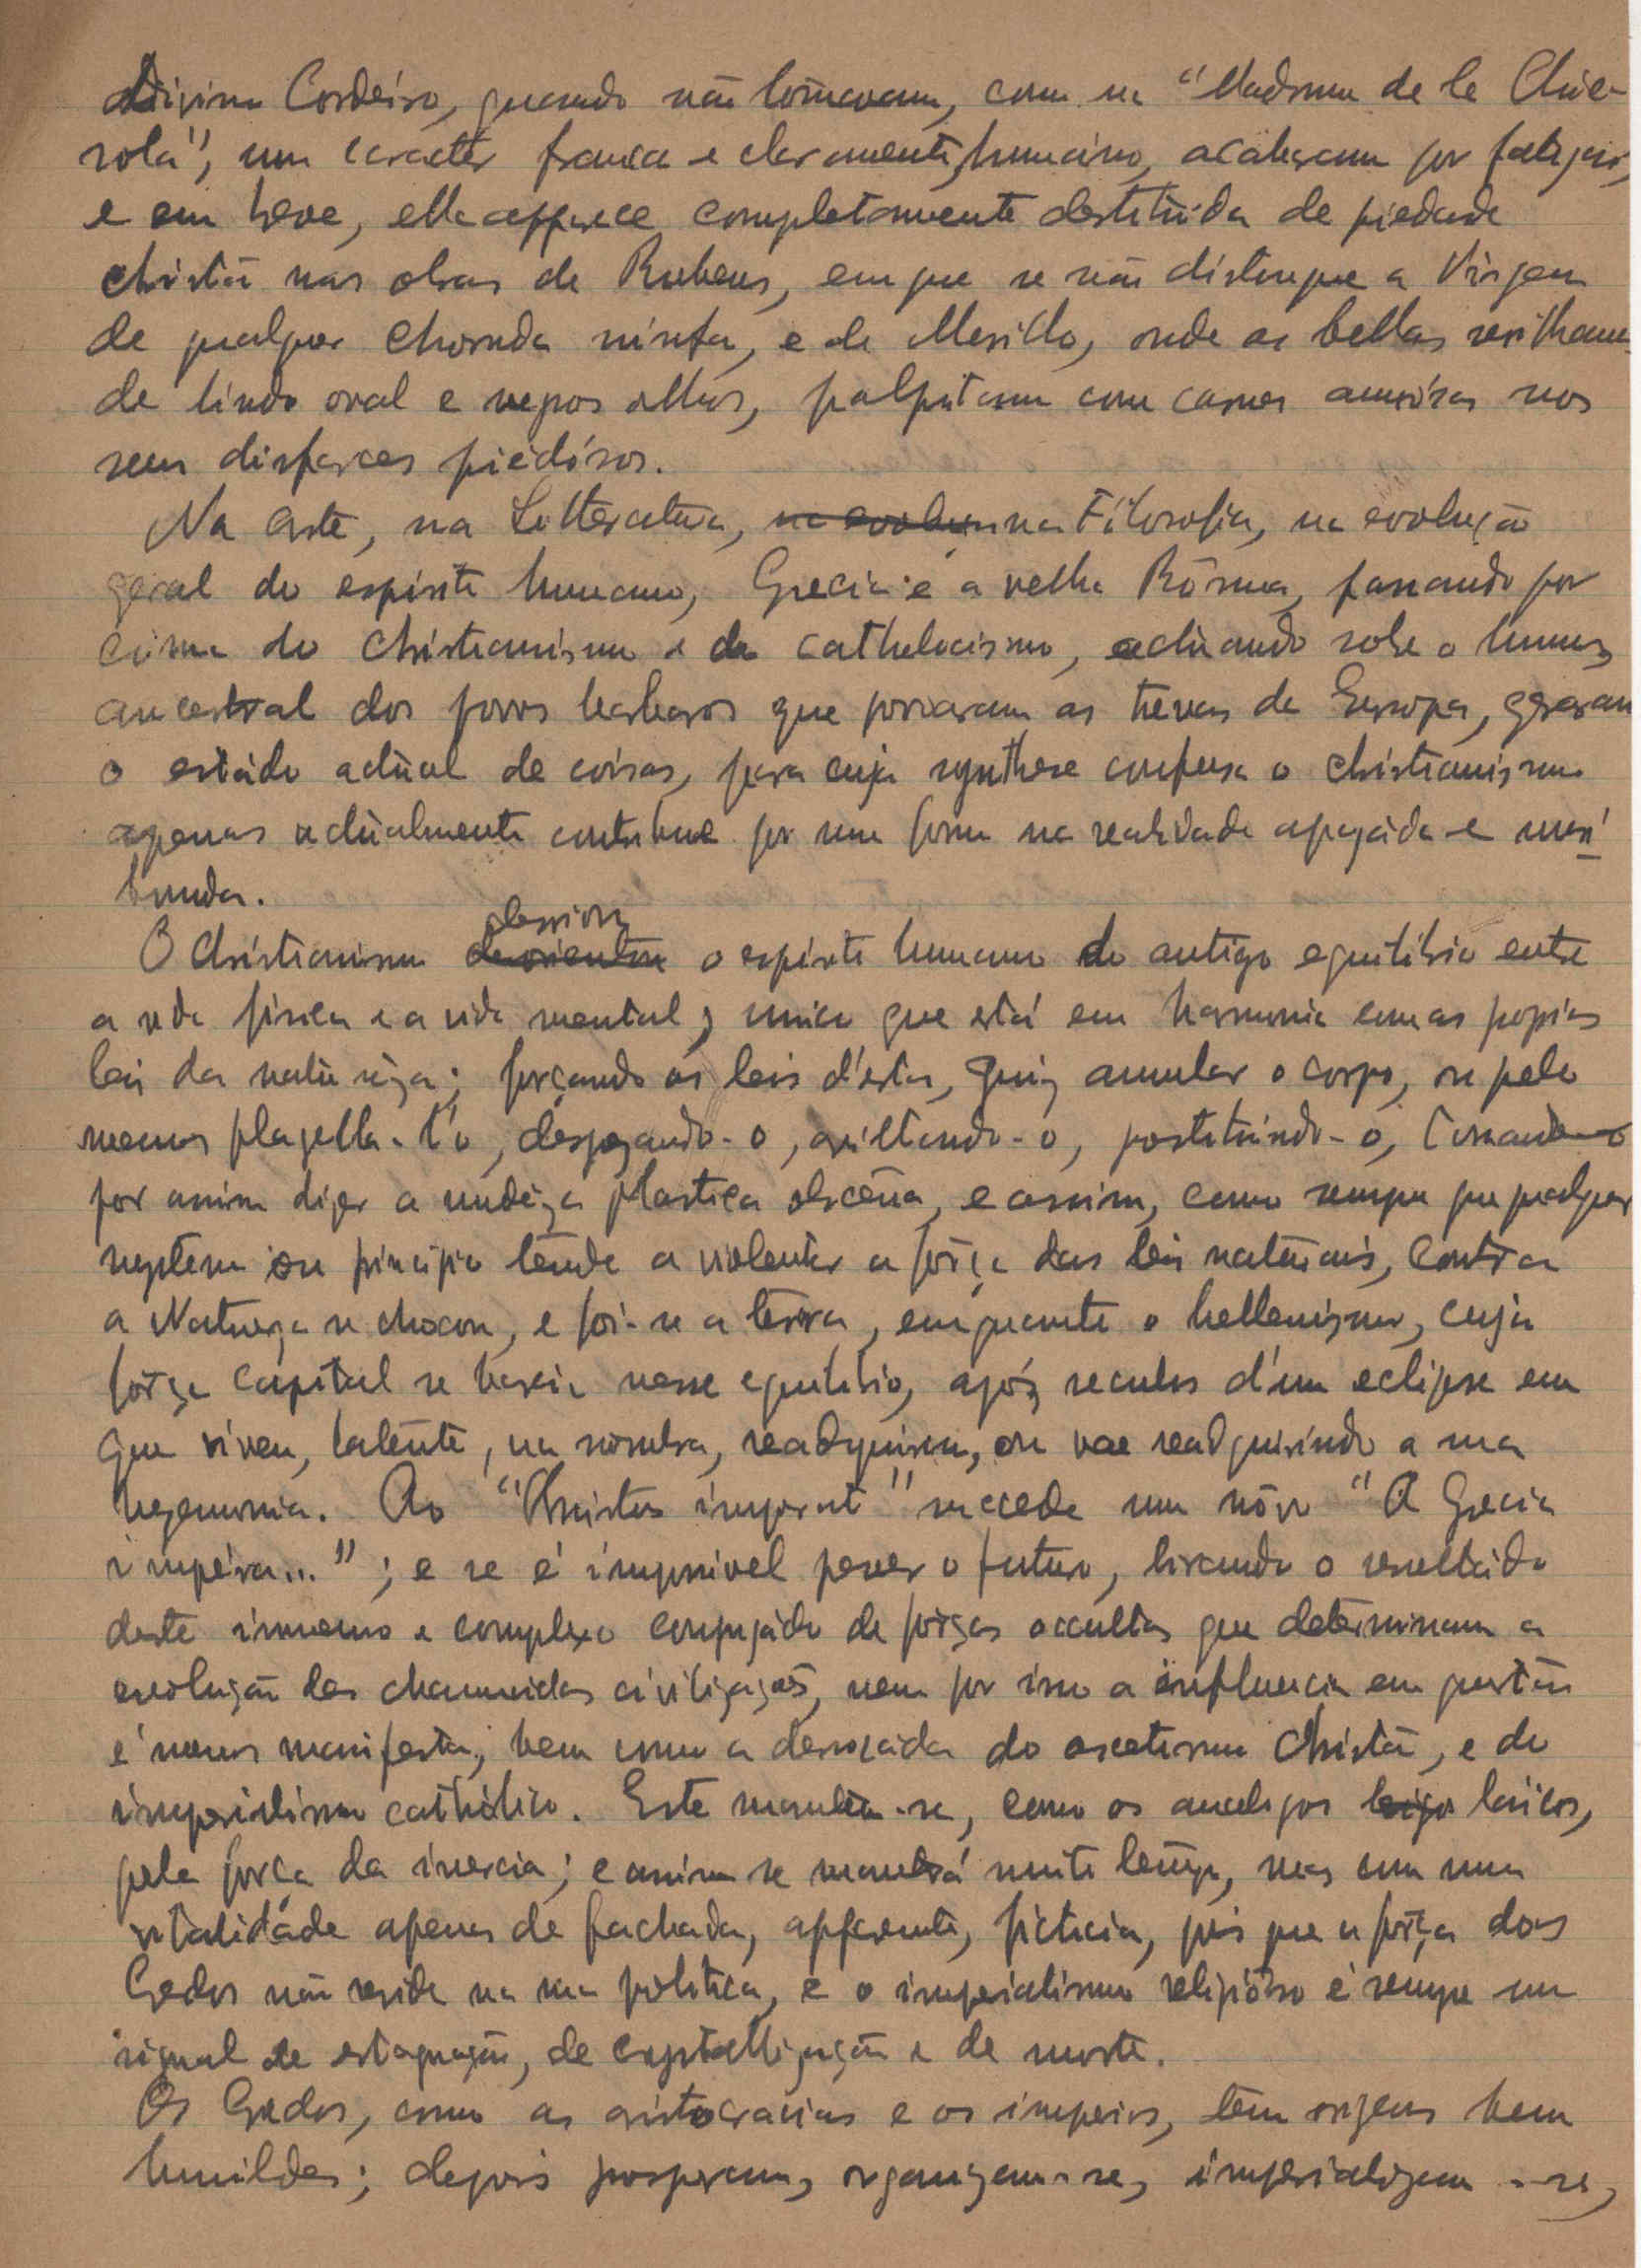 divino Cordeiro, quando não tomavam, como na "Madona de la Chie-
rola", um caracter franca e claramente humano, acabaram por fatigar,
e em breve, ella apparece completamente destituida de piedade
christã nas obras de Rubens, em que se não distingue a Virgem
de qualquer ninfa, e de Murillo, onde as bellas
de lindo oval e negros olhos, palpitam com carnes amorosas nos
seus disfarces piedósos.
Na Arte, na Litteratura, na Filosofia, na evolução
geral do espirito humano, Grecia e a velha Rôma, passando por
cima do christianismo e do catholocismo, actuando sobre o humus
ancestral dos povos barbaros que povoaram as trevas da Europa, geraram
o estádo actual de coisas, para cuja synthese confusa o christianismo
apenas actualmente contribue por uma forma na realidade apagáda e mori
bunda.
O Christianismo o espirito humano do antigo equilibrio entre
a vida fisica e a vida mental, unico que está em harmonia com as proprias
leis da naturêza; forçando as leis d'esta, quiz annular o corpo, ou pelo
menos flagella-l'o, desprezando-o, aviltando-o, prostituindo-o, tornando
por assim dizer a nudêza plastica obscêna, e assim, como sempre que qualquer
systema ou principio tende a violentar a fôrça das leis naturais, contra
a Natureza se chocou, e foi-se a terra, emquanto o hellenismo, cuja
fôrça capital se baseia nesse equilibrio, após seculos d'um eclipse em
que viveu, latênte, na sombra, readquiriu, ou vae readquirindo a sua
hegemonia. Ao "Christus imperat" succede um nôvo "A Grecia
impéra..."; e se é impossivel prever o futuro, tirando o resultádo
deste immenso e complexo conjugádo de fôrças occultas que determinam a
evolução das chamadas civilizações, nem por isso a influencia em questão
é menos manifesta, bem como a derrocada do ascetismo christã, e do
imperialismo cathólico. Este mantem-se, como os analogos laicos,
pela força da inercia; e assim se manterá muito tempo, mas com uma
vitalidáde apenas de fachada, apparente, ficticia, pois que a fôrça dos
Credos não reside na sua politica, e o imperialismo religiôso é sempre um
signal de estagnação, de crystallização e de morte.
Os Credos, como as aristocracias e os imperios, têm origens bem
humildes; depois prosperam, organizam-se, imperializam-se,